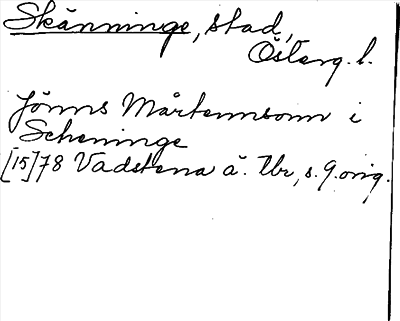 Skänninge, stad,
Österg. l.
Jönns Mårtennsonn i
Scheninge
[15]78 Vadstena å. Tbr, s. 9. orig.